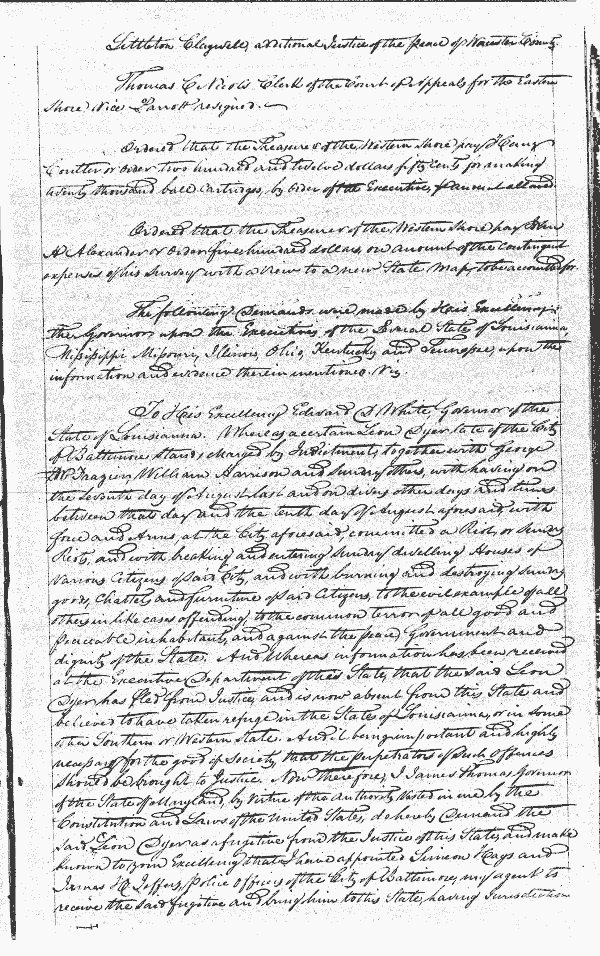 Littleton Claywell, additional Justice of the peace of Worcester County.
Thomas C. Nicols Clerk of the Court of Appeals for the Eastern
Shore Vice Parrott resigned.
Ordered that the Treasurer of the Western Shore pay Henry
Coulter or order two hundred and twelve dollars fifty Cents for making
twenty thousand ball Cartridges, by order of the Executive,
Ordered that the Treasurer of the Western Shore pay John
H Alexander or order five hundred dollars, on amount of the Contingent
expenses of his Survey with a view to a new State Map, to be accounted for
The following Demands were made by His Excellency
the Governor upon the Executives of the Several States of Louisianna,
Mississippi Missouri, Illinois, Ohio, Kentucky and Tennessee, upon the
information and evidence therein mentioned. Viz
To His Excellency Edward D White, Governor of the
State of Louisianna. Whereas a certain Leon Dyer late of the City
of Baltimore stands charged by Indictment, together with George
McFragier, William Harrison and sundry others, with having on
the seventh day of August last and on divers other days and times
between that day and the tenth day of August aforesaid, with
force and Arms, at the City aforesaid, committed a Riot, or Sundry
Riots, and with breaking and entering Sundry dwelling Houses of
Various Citizens of said City, and with burning and destroying Sundry
goods, Chattels and furniture of said Citizens, to the evil example of all
others in like cases offending, to the common terror of all good and
peaceable inhabitants, and against the peace, Government and
dignity of the State. And Whereas information has been received
at the Executive Department of this State, that the said Leon
Dyer has fled from Justice, and is now absent from this State and
believed to have taken refuge in the State of Louisianna, or in some
other Southern or Western State. And it being important and highly
necessary for the good of Society that the perpetrators of such Offences
should be brought to Justice. Now therefore, I James Thomas Governor
of the State of Maryland, by virtue of the Authority vested in me by the
Constitution and Laws of the United States, do hereby Demand the
said Leon Dyer as a fugitive from the Justice of this State, and make
known to your Excellency that I have appointed Simeon Hays and
James H Jeffers, Police Officers of the City of Baltimore, my agent to
receive the said fugitive and bring him to this State, having Jurisdiction